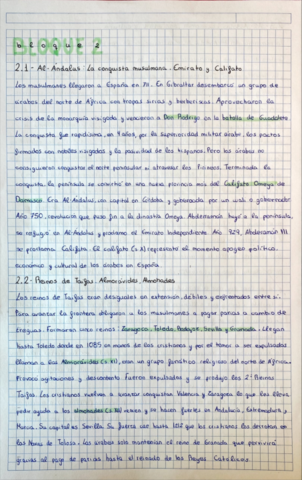 BLOQUE 2
2.1 - Al-Andalus: La conquista musulmana. Emirato y Califato
Los musulmanes llegaron a España en 711. En Gibraltar desembarcó un grupo de
árabes del norte de África con tropas sirias y bereberes. Aprovecharon la
crisis de la monarquía visigoda y vencieron a Don Rodrigo en la batalla de Guadalete
La conquista fue rapidísima, en 4 años, por la superioridad militar árabe, los pactos
firmados con nobles visigodos y la pasividad de los hispanos. Pero los árabes no
consiguieron conquistar el norte peninsular ni atravesar los Pirineos. Terminada la
conquista, la península se convirtió en una nueva provincia más del Califato Omeya de
Damasco. Era Al-Andalus, con capital en Córdoba y gobernada por un valí o gobernador
Año 750, revolución que puso fin a la dinastía Omeya. Abderramán huyó a la península,
se refugió en Al-Andalus y proclamó el Emirato Independiente. Año 929, Abderramán III
se proclama Califato. El califato (s. X) representó el momento apogeo político,
económico y cultural de los árabes en España.
2.2 - Reinos de Taifas. Almorávides. Almohades
Los reinos de Taifas eran desiguales en extensión, débiles y enfrentados entre sí.
Para avanzar la frontera obligaron a los musulmanes a pagar parias a cambio de
treguas. Formaron varios reinos: Zaragoza, Toledo, Badajoz, Sevilla y Granada. Llegan
hasta Toledo donde en 1085 en manos de los cristianos y por el temor a ser expulsados
llaman a los Almorávides (s. XI), eran un grupo fanático religioso del norte de África.
Provocó agitaciones y descontento. Fueron expulsados y se produjo los 2º Reinos
Taifas. Los cristianos vuelven a avanzar conquistan Valencia y Zaragoza lo que les lleva
pedir ayuda a los almohades (s. XII) vienen y se hacen fuertes en Andalucía, Extremadura y
Murcia. Su capital es Sevilla. Su fuerza cae hasta 1212 que los cristianos los derrotan en
las Navas de Tolosa. Los árabes solo mantienen el reino de Granada que pervivirá
gracias al pago de parias hasta el reinado de los Reyes Católicos.